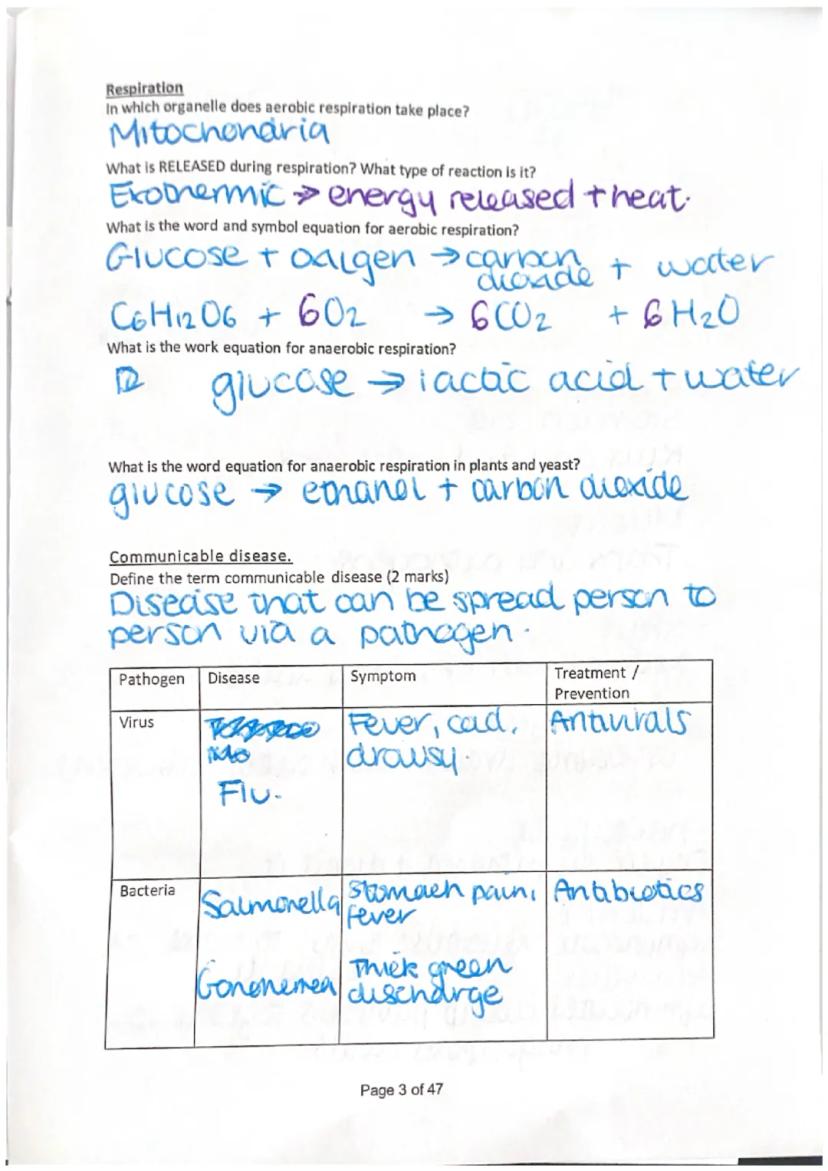 Respiration
In which organelle does aerobic respiration take place?
Mitochondria
What is RELEASED during respiration? What type of reaction is it?
Exothermic → energy released + heat.
What is the word and symbol equation for aerobic respiration?
Glucose + oxygen → carbon dioxide + water
C6H12O6 + 6O2 → 6CO2 + 6H2O
What is the work equation for anaerobic respiration?
glucose → lactic acid + water
What is the word equation for anaerobic respiration in plants and yeast?
glucose → ethanol + carbon dioxide
Communicable disease.
Define the term communicable disease (2 marks)
Disease that can be spread person to
person via a pathogen.
Pathogen Disease Symptom Treatment /
Prevention
Virus Fever, cold, Antivirals
drowsy.
Flu.
Bacteria Salmonella Stomach pain, Antibiotics
fever
Gonorrhea Thick green
discharge
Page 3 of 47